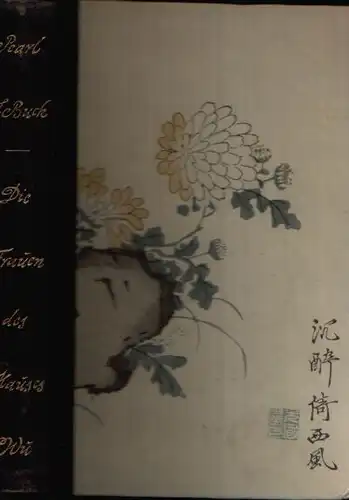 Pearl
S. Buck
—
Die
Frauen
des
Hauses
Wu
沉醉倚西風